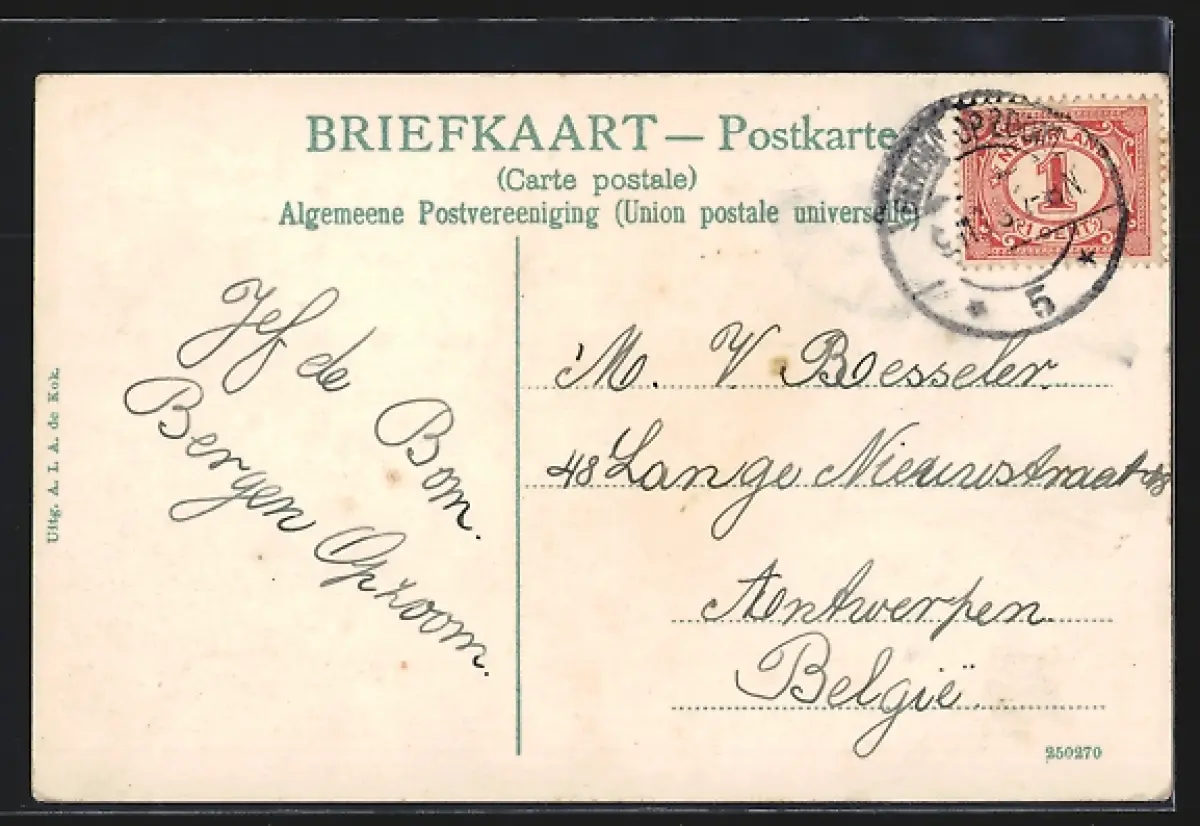 BRIEFKAART — Postkarte
(Carte postale)
Algemeene Postvereeniging (Union postale universelle)
BERGEN OP ZOOM
5
NEDERLAND
1
1 CENT
Jef de Bom.
Bergen Opzoom.
M. V Boesseler
48 Lange Nieuwstraat 48
Antwerpen
België
Uitg. A. I. A. de Kok.
250270